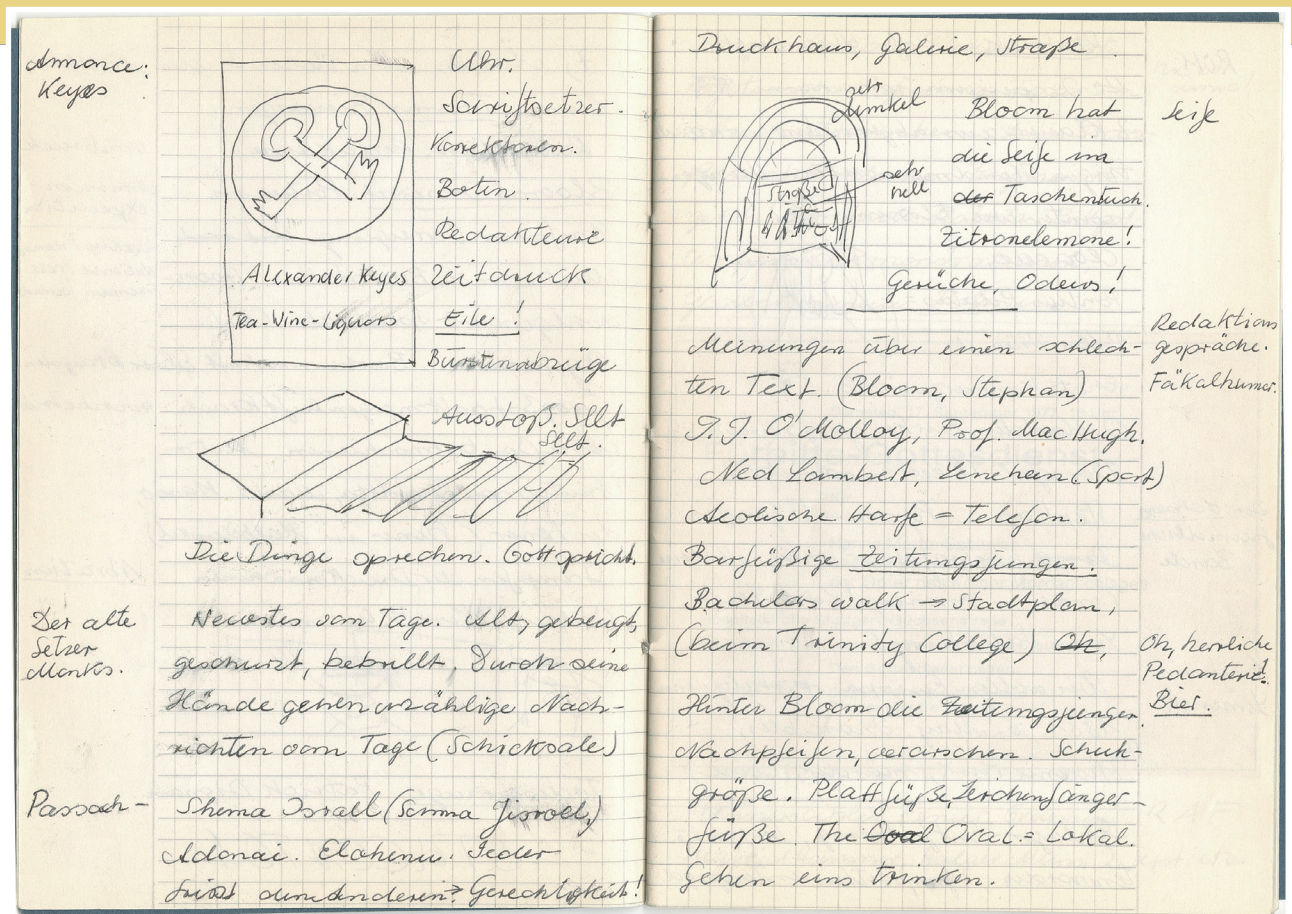 Annonce:
Keyes
Alexander Keyes
Tea-Wine-Liquors
Uhr.
Schriftsetzer.
Korrektoren.
Boten.
Redakteure
Zeitdruck
Eile!
Bürstenabzüge
Ausstoß. Sllt
Sllt.
Die Dinge sprechen. Gott spricht.
Der alte
Setzer
Monks.
Neuestes vom Tage. Alt, gebeugt,
geschürzt, bebrillt. Durch seine
Hände gehen unzählige Nach-
richten vom Tage (Schicksale)
Passach-
Shema Israel (Semma Jisroel,)
Adonai. Elohenu. Jeder
frisst den Anderen? Gerechtigkeit!
Druckhaus, Galerie, Straße
sehr
dunkel
Straße
sehr
hell
Bloom hat
die Seife im
der Taschentuch.
Zitronelemone!
Gerüche, Odeurs!
Seife
Redaktions
gespräche.
Fäkalhumor.
Meinungen über einen schlech-
ten Text. (Bloom, Stephan)
J.J. O'Molloy, Prof. Mac Hugh.
Ned Lambert, Lenehan (Sport)
Aeolische Harfe = Telefon.
Barfüßige Zeitungsjungen.
Bachelors walk → Stadtplan,
(beim Trinity College) Oh,
Oh, herrliche
Pedanterie!
Bier.
Hinter Bloom die Zeitungsjungen.
Nachpfeifen, verarschen. Schuh-
größe. Plattfüße, Lerchenfänger-
füße. The Oval Oval = Lokal.
Gehen eins trinken.